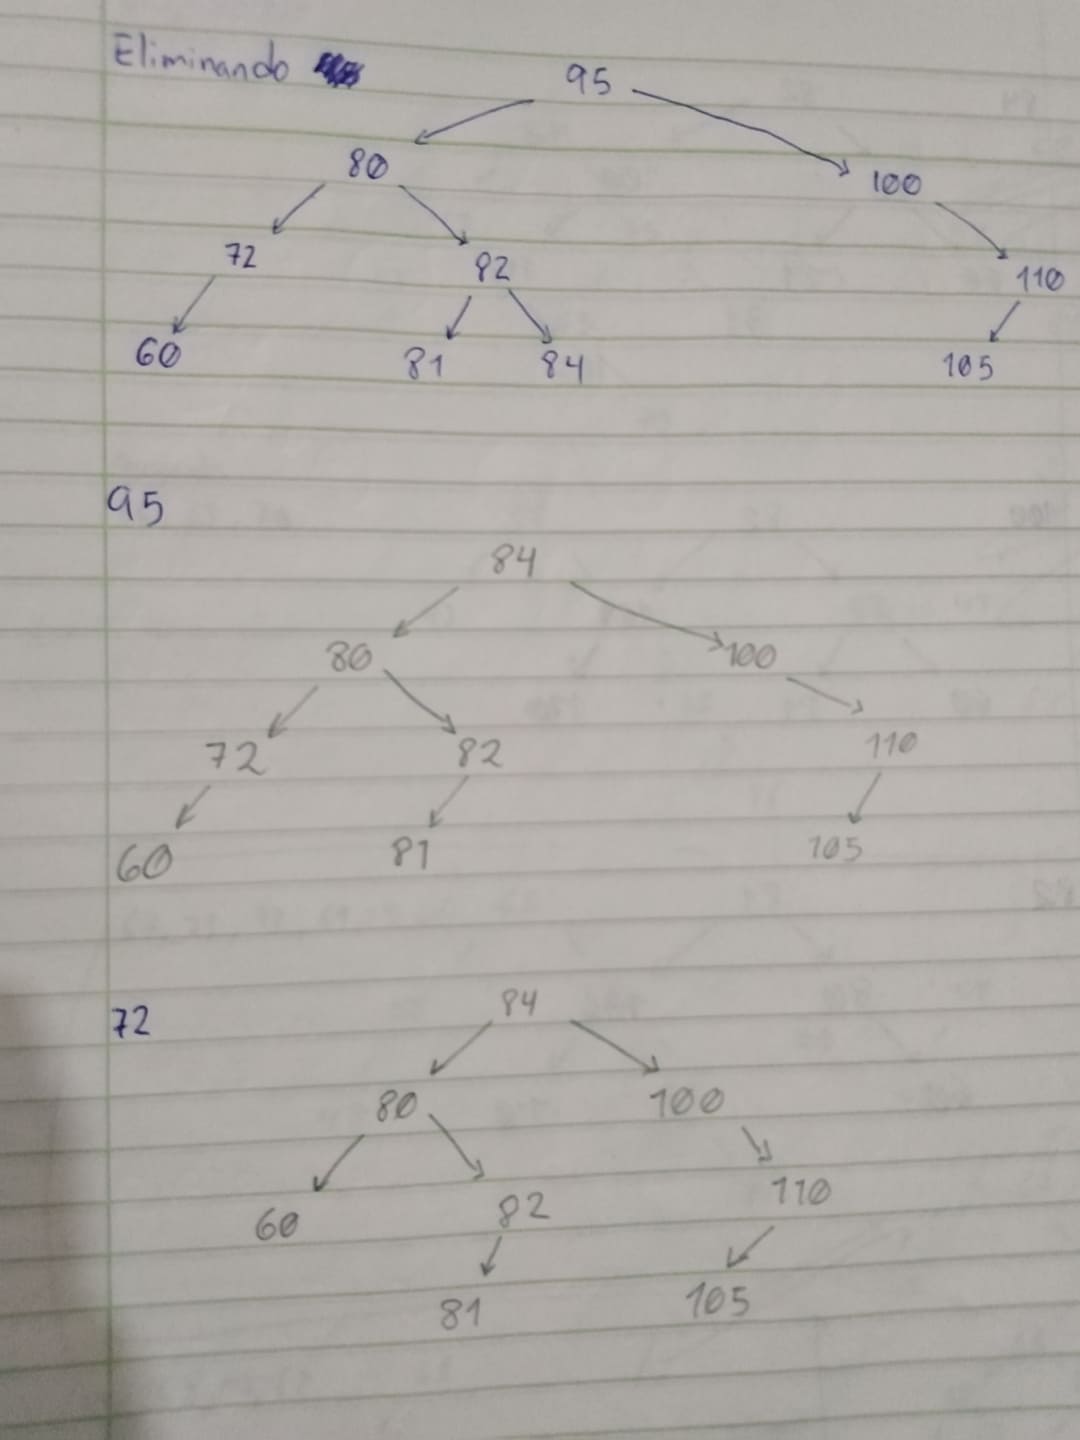 Eliminando
95
80 100
72 82 110
60 81 84 105
95
84
80 100
72 82 110
60 81 105
72
84
80 100
60 82 110
81 105